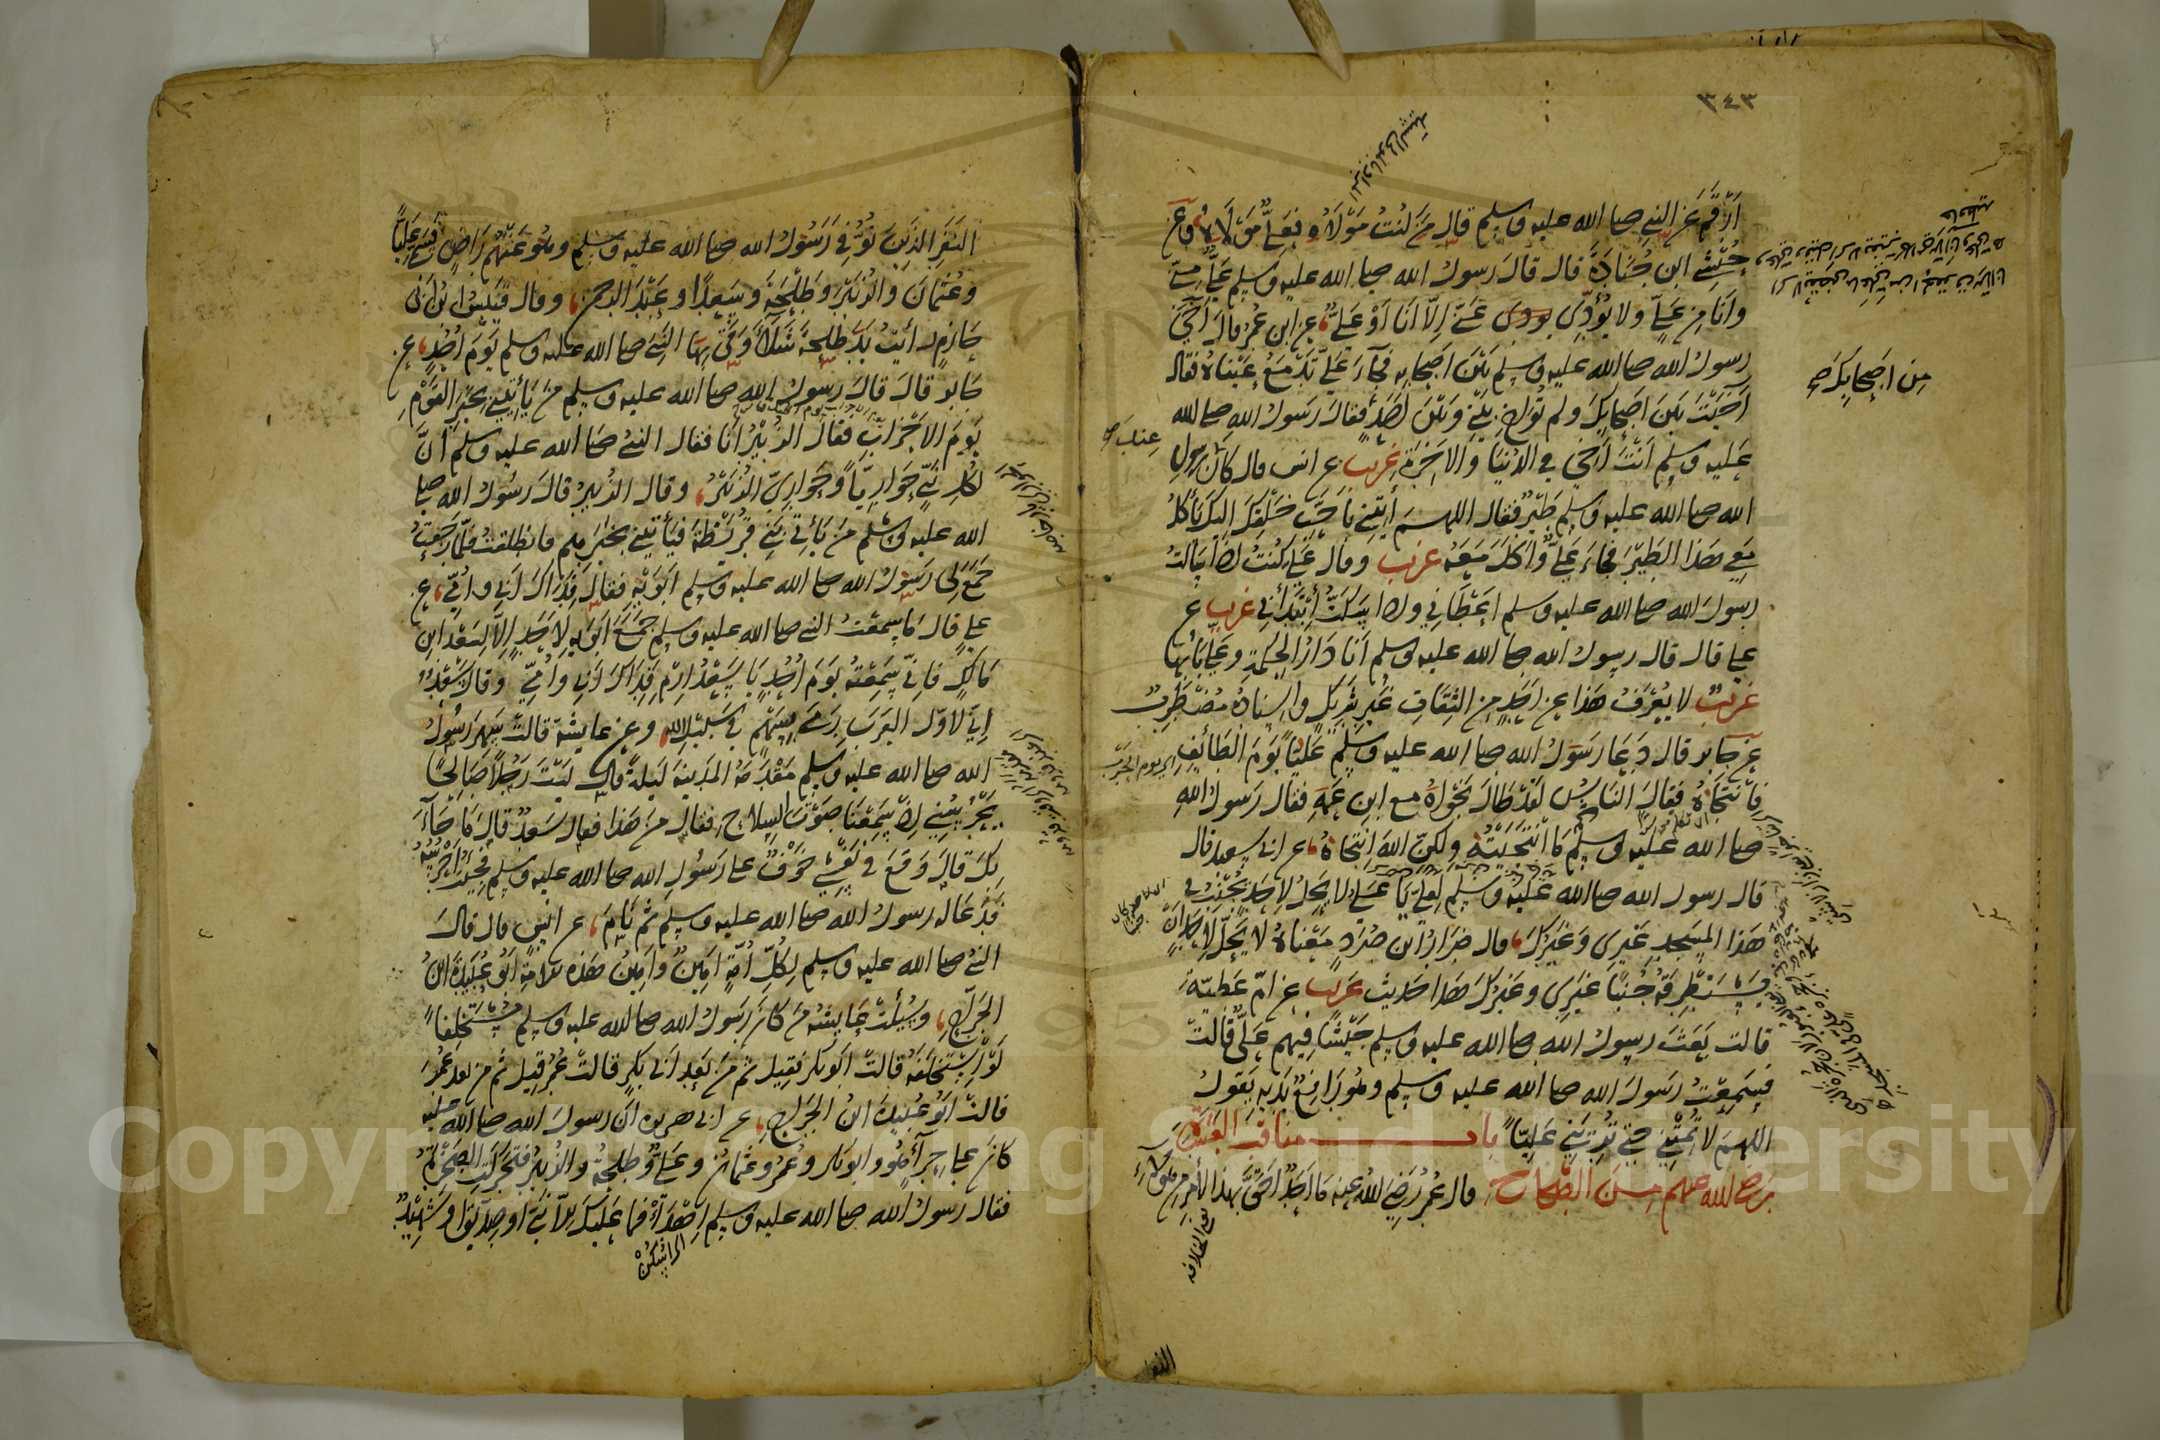 ٣٤٣
أرقم عن النبي صلى الله عليه وسلم قال من كنت مولاه فعلي مولاه وعن
حبشي ابن جنادة قال قال رسول الله صلى الله عليه وسلم علي مني
وأنا من علي ولا يؤدي عني إلا أنا أو علي عن ابن عمر قال آخى
رسول الله صلى الله عليه وسلم بين اصحابه فجاء علي تدمع عيناه فقال
آخيت بين اصحابك ولم تواخ بيني وبين احد فقال رسول الله صلى الله
عليه وسلم أنت أخي في الدنيا والآخرة غريب عن انس قال كان رسول
الله صلى الله عليه وسلم طير فقال اللهم أيتني بأحب خلقك إليك يأكل
معي هذا الطير فجاء علي وأكل معه غريب وقال علي كنت اذا سألت
رسول الله صلى الله عليه وسلم اعطاني واذا سكت أبتدأني غريب عن
علي قال قال رسول الله صلى الله عليه وسلم أنا دار الحكمة وعلي بابها
غريب لا يعرف هذا عن احد من الثقات غير شريك واسناده مضطرب
عن جابر قال دعا رسول الله صلى الله عليه وسلم عليا يوم الطائف
فأنتجاه فقال الناس لقد طال نجواه مع ابن عمه فقال رسول الله
صلى الله عليه وسلم ما أنتجيته ولكن الله انتجاه عن ابي سعيد قال
قال رسول الله صلى الله عليه وسلم لعلي يا علي لا يحل لاحد يجنب في
هذا المسجد غيري وغيرك قال ضرار ابن صرد معناه لا يحل لاحد أن
يستطرقه جنبا غيري وغيرك هذا حديث غريب عن ام عطية
قالت بعث رسول الله صلى الله عليه وسلم جيشا فيهم علي قالت
فسمعت رسول الله صلى الله عليه وسلم وهو رافع يديه يقول
اللهم لا تمتني حتى تريني عليا باب مناقب العشرة
رضي الله عنهم من الصحاح قال عمر رضي الله عنه ما احد احق بهذا الأمر من هؤلاء
من اصحابك
النفر
النفر الذين توفي رسول الله صلى الله عليه وسلم وهو عنهم راض فسمى عليا
وعثمان والزبير وطلحة وسعدا وعبد الرحمن وقال قيس ابن ابي
حازم رأيت يد طلحة شلاء وقى بها النبي صلى الله عليه وسلم يوم أحد عن
جابر قال قال رسول الله صلى الله عليه وسلم من يأتيني بخبر القوم
يوم الاحزاب فقال الزبير أنا فقال النبي صلى الله عليه وسلم ان
لكل نبي حواريا وحواري الزبير وقال الزبير قال رسول الله صلى
الله عليه وسلم من يأتي بني قريظة فيأتيني بخبرهم فانطلقت فلما رجعت
جمع لي رسول الله صلى الله عليه وسلم ابويه فقال فداك ابي وأمي عن
علي قال ما سمعت النبي صلى الله عليه وسلم جمع ابويه لاحد إلا لسعد ابن
مالك فاني سمعته يوم أحد يا سعد ارم فداك ابي وأمي وقال سعد
إني لأول العرب رمى بسهم في سبيل الله وعن عايشة قالت سهر رسول
الله صلى الله عليه وسلم مقدمه المدينة ليلة فقال ليت رجلا صالحا
يحرسني اذ سمعنا صوت السلاح فقال من هذا فقال سعد قال ما جاء
بك قال وقع في نفسي خوف على رسول الله صلى الله عليه وسلم فجيت احرسه
فدعا له رسول الله صلى الله عليه وسلم ثم نام عن انس قال قال
النبي صلى الله عليه وسلم لكل أمة امين وامين هذه الامة ابو عبيدة ابن
الجراح وسئلت عايشة من كان رسول الله صلى الله عليه وسلم مستخلفا
لو استخلفه قالت ابو بكر فقيل ثم من بعد ابي بكر قالت عمر قيل ثم من بعد عمر
قالت ابو عبيدة ابن الجراح عن ابي هريرة ان رسول الله صلى الله عليه
كان على حراء هو وابو بكر وعمر وعثمان وعلي وطلحة والزبير فتحركت الصخرة
فقال رسول الله صلى الله عليه وسلم اهدأ فما عليك إلا نبي او صديق او شهيد
اي اسكن
Copyright King Saud University